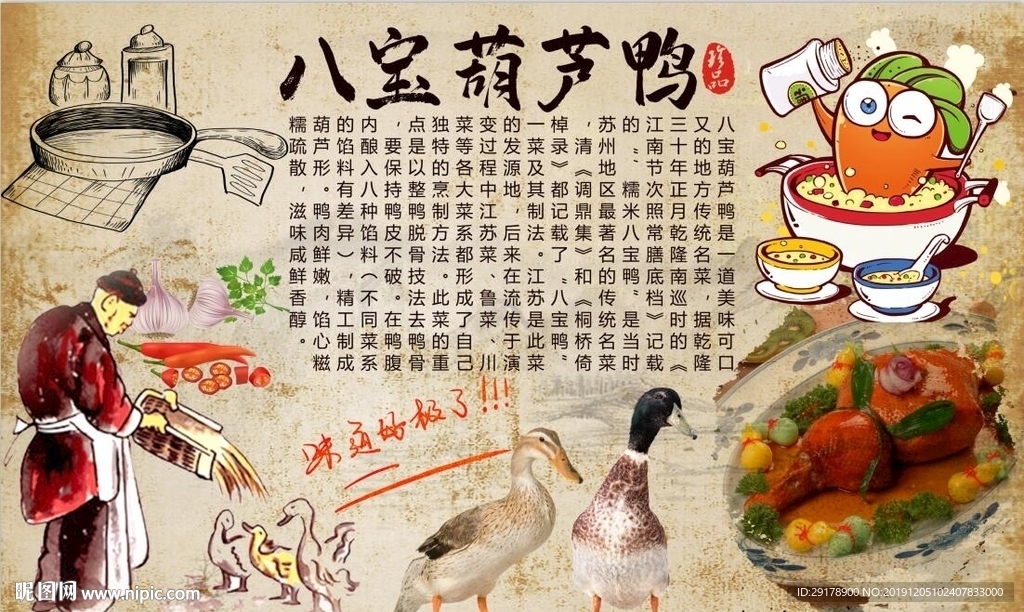 八宝葫芦鸭
珍品
八宝葫芦鸭是一道美味可口
又的地方传统名菜，据乾隆
三十年正月乾隆南巡时的《
江南节次照常膳底档》记载
的“、糯米八宝鸭”是当时
苏州地区最著名的传统名菜
，清《调鼎集》和《桐桥倚
棹录》都记载了“八宝鸭”
一菜及其制法。江苏是此菜
的发源地，后来在流传于演
变过程中江苏菜、鲁菜、川
菜等各大菜系都形成了自己
独特的烹制方法。此菜的重
点是以整鸭脱骨技法去鸭骨
，要保持鸭皮不破。在鸭腹
内酿入八种馅料（不同菜系
的馅料有差异），精工制成
葫芦形。鸭肉鲜嫩，馅心糍
糯疏散，滋味咸鲜香醇。
味道好极了!!!
昵图网 www.nipic.com
ID:29178900 NO:20191205102407833000